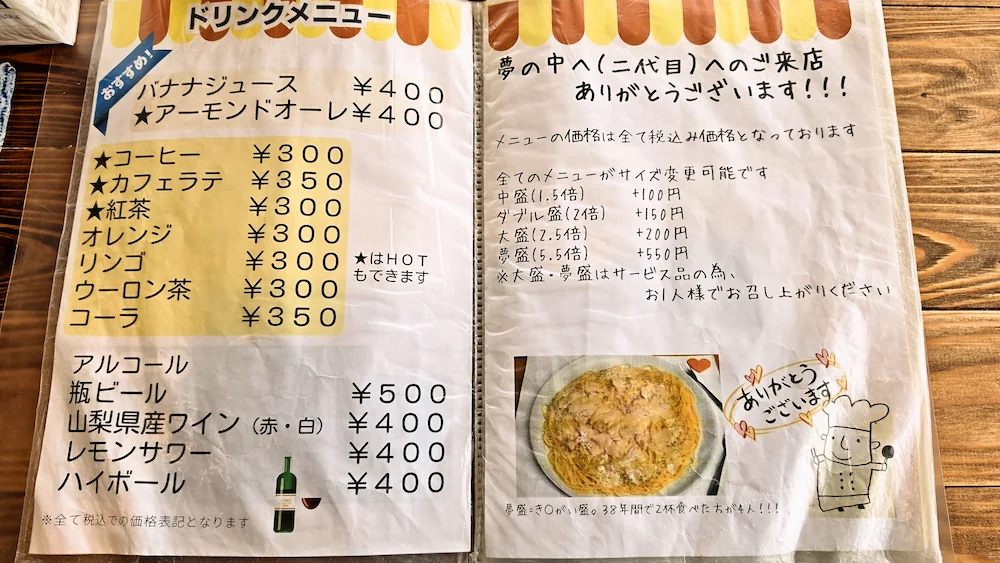 ドリンクメニュー
おすすめ!
バナナジュース ￥400
★アーモンドオーレ￥400
★コーヒー ￥300
★カフェラテ ￥350
★紅茶 ￥300
オレンジ ￥300
リンゴ ￥300
ウーロン茶 ￥300
コーラ ￥350
★はHOT
もできます
アルコール
瓶ビール ￥500
山梨県産ワイン（赤・白） ￥400
レモンサワー ￥400
ハイボール ￥400
※全て税込での価格表記となります
夢の中へ(二代目)へのご来店
ありがとうございます!!!
メニューの価格は全て税込み価格となっております
全てのメニューがサイズ変更可能です
中盛(1.5倍) +100円
ダブル盛(2倍) +150円
大盛(2.5倍) +200円
夢盛(5.5倍) +550円
※大盛・夢盛はサービス品の為、
お1人様でお召し上がりください
ありがとう
ございます
夢盛=き○がい盛。38年間で2杯食べた方が4人!!!